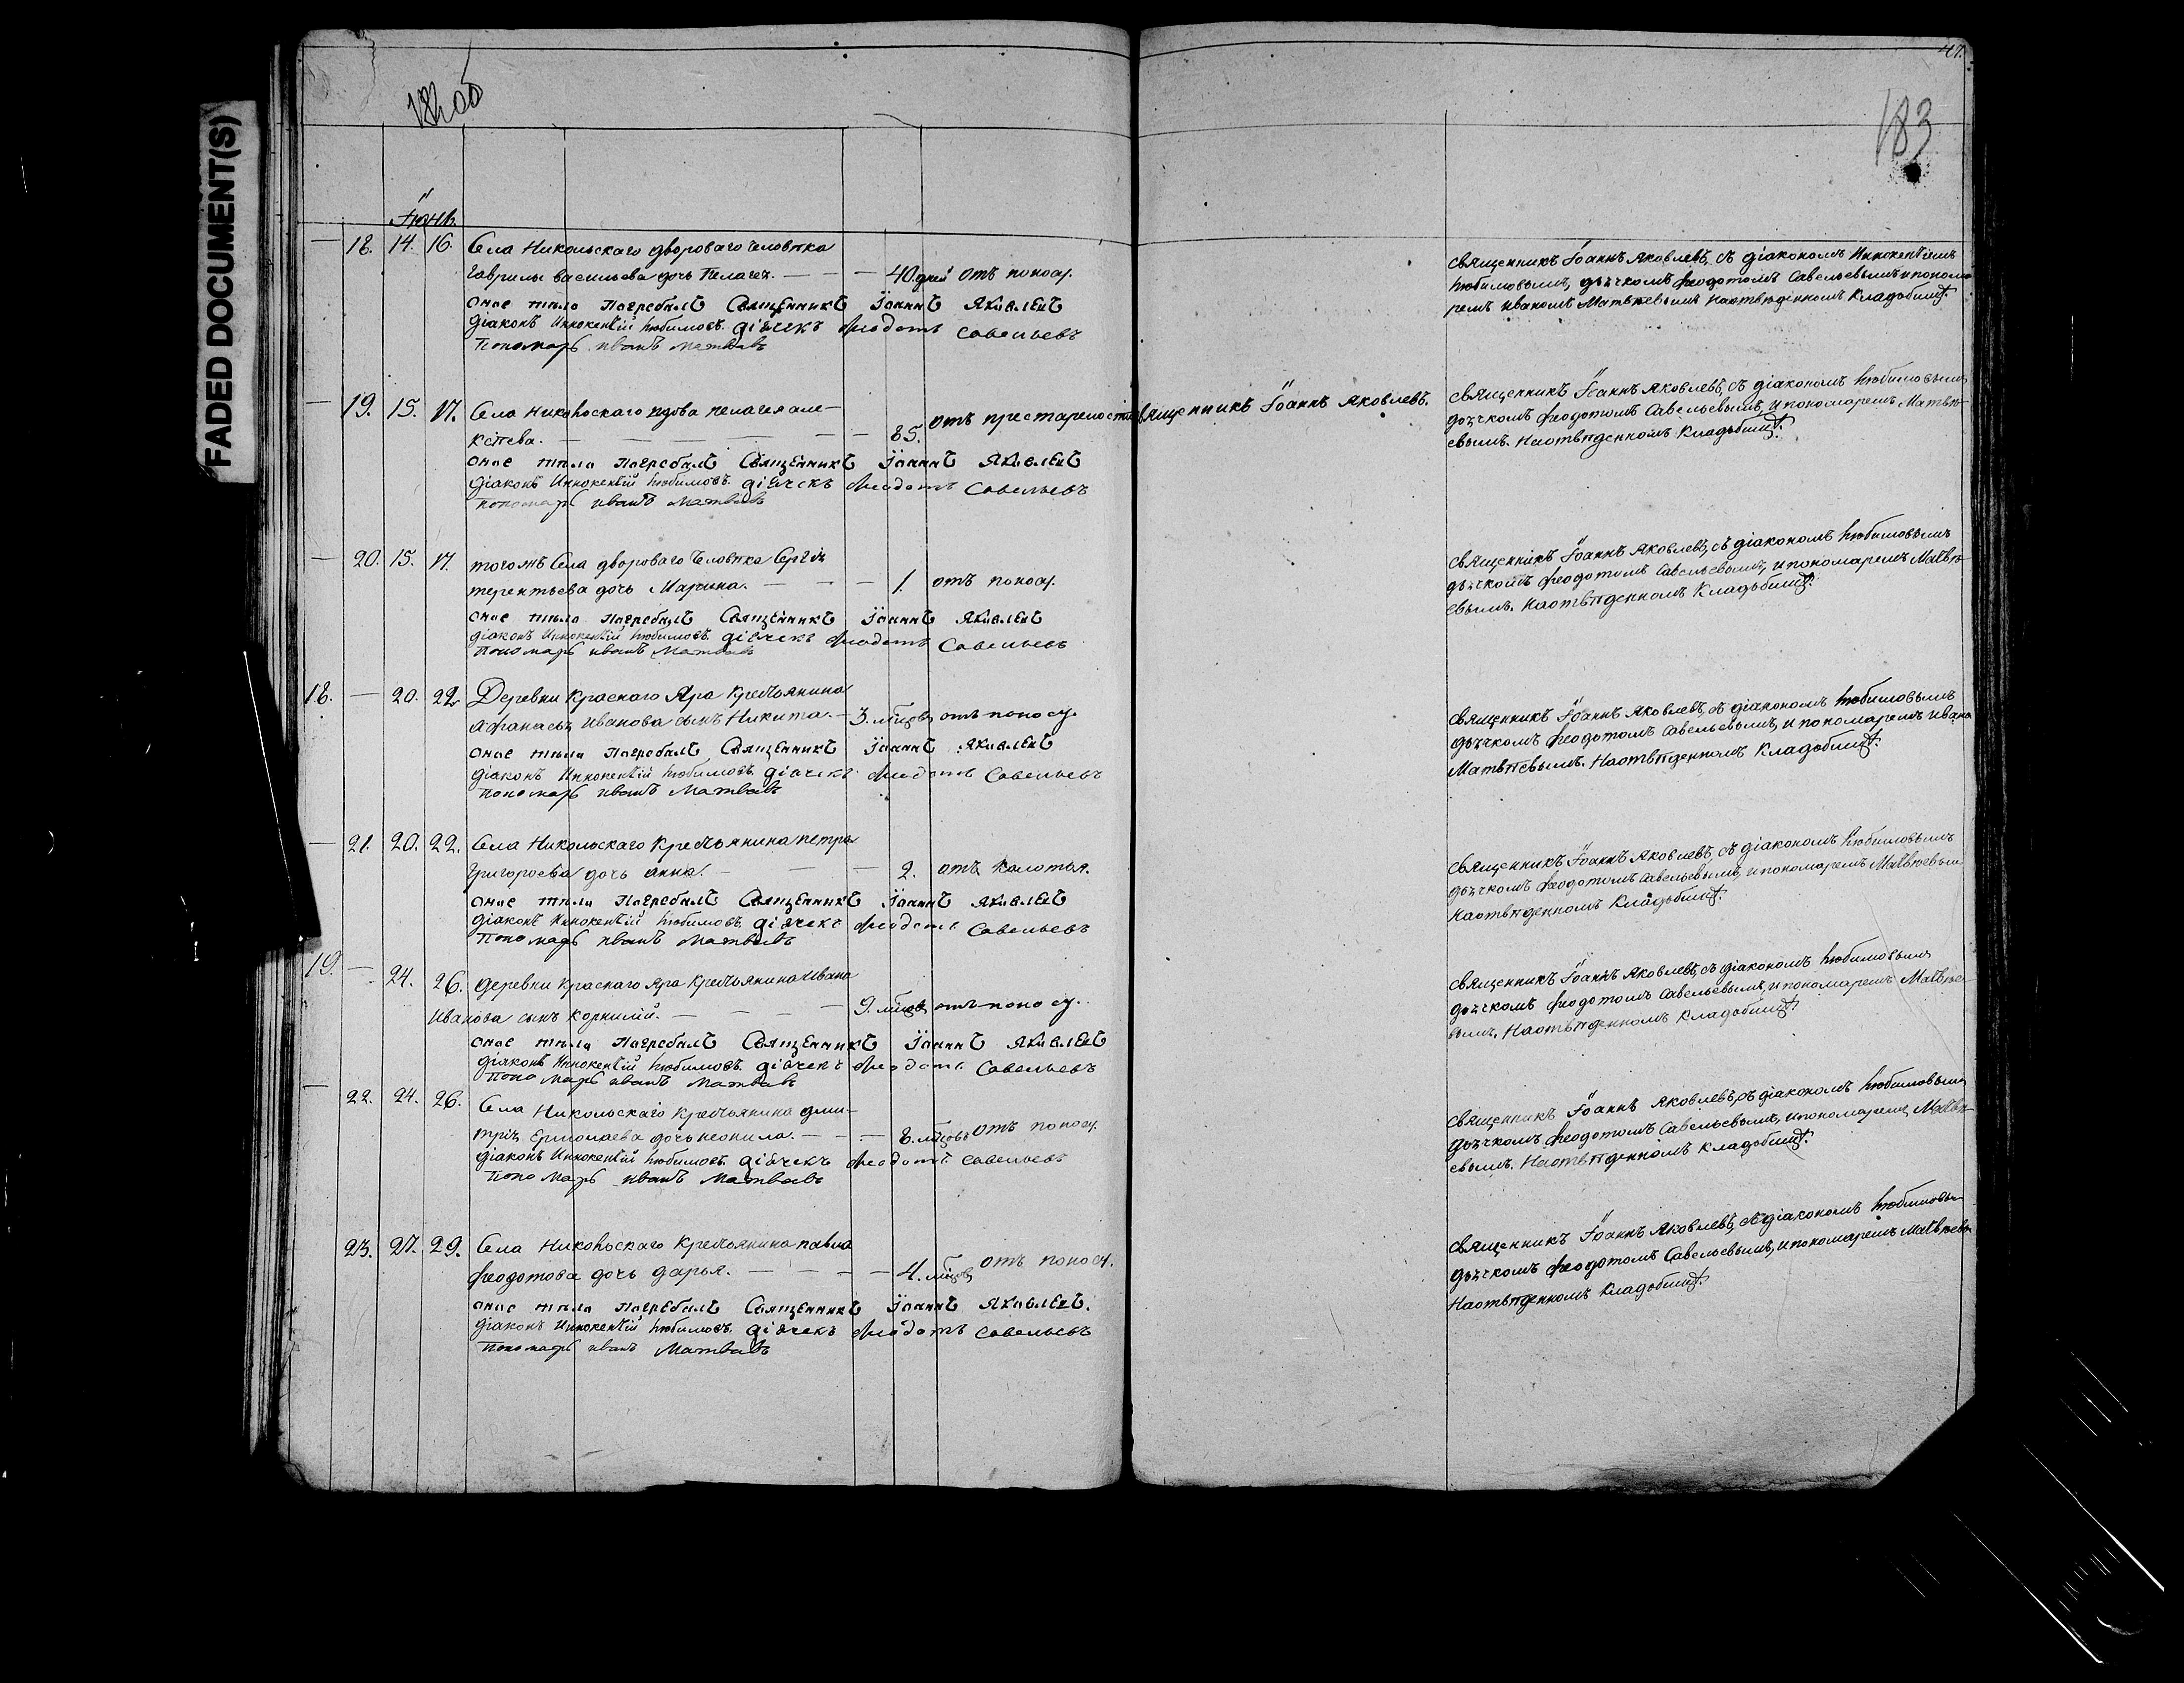 47.
183
FADED DOCUMENT(S)
Іюнь.
— 18. 14. 16. Села Никольскаго двороваго человѣка
Гаврилы Васильева дочь Пелагея. — — — 40. дней отъ поносу.
оное тѣло погребалъ Священникъ Іоаннъ Яковлевъ
Діаконъ Иннокентій Любимовъ. дiячекъ Феодотъ Савельевъ
Пономарь иванъ Матвѣевъ
Священникъ Іоаннъ Яковлевъ, съ діакономъ Иннокентіемъ
Любимовымъ, дьячкомъ Феодотомъ Савельевымъ и понома
ремъ иваномъ Матвѣевымъ на отвѣденномъ Кладбищѣ.
— 19. 15. 17. Села Никольскаго вдова пелагея але-
ксѣева. — — — — — — 85. отъ престарелости Священникъ Іоаннъ Яковлевъ.
оное тѣло погребалъ Священникъ Іоаннъ Яковлевъ
Діаконъ Иннокентій Любимовъ. дiячекъ Феодотъ Савельевъ
пономарь иванъ Матвѣевъ
Священникъ Іоаннъ Яковлевъ, съ діакономъ Любимовымъ
дьячкомъ Феодотомъ Савельевымъ, и пономаремъ Матвѣ-
евымъ. На отвѣденномъ Кладьбищѣ.
— 20. 15. 17. тогожъ Села двороваго человѣка Сергѣя
терентьева дочь Марина. — — — 1. отъ поносу.
оное тѣло погребалъ Священникъ Іоаннъ Яковлевъ
діаконъ Иннокентій Любимовъ. дiячекъ Феодотъ Савельевъ
Пономарь иванъ Матвѣевъ
Священникъ Іоаннъ Яковлевъ, съ діакономъ Любимовымъ
дьячкомъ Феодотомъ Савельевымъ, и пономаремъ Матвѣ-
евымъ. На отвѣденномъ Кладьбищѣ.
18. — 20. 22. Деревни Краснаго Яра Крестьянина
Афанасья Иванова сынъ Никита. — 3. мѣсяц. отъ поносу.
оное тѣло погребалъ Священникъ Іоаннъ Яковлевъ
діаконъ Иннокентій Любимовъ. дiячекъ Феодотъ Савельевъ
пономарь иванъ Матвѣевъ
Священникъ Іоаннъ Яковлевъ, съ діакономъ Любимовымъ
дьячкомъ Феодотомъ Савельевымъ, и пономаремъ Ивано
Матвѣевымъ. На отвѣденномъ Кладбищѣ.
— 21. 20. 22. Села Никольскаго Крестьянина петра
Григорьева дочь анна. — — — 2. отъ колотья.
оное тѣло погребалъ Священникъ Іоаннъ Яковлевъ
діаконъ Иннокентій Любимовъ. дiячекъ Феодотъ Савельевъ
Пономарь иванъ Матвѣевъ
Священникъ Іоаннъ Яковлевъ, съ діакономъ Любимовымъ
дьячкомъ Феодотомъ Савельевымъ, и пономаремъ Матвѣевым
На отвѣденномъ Кладьбищѣ.
19. — 24. 26. деревни Краснаго Яра Крестьянина Ивана
Иванова сынъ Корнилій. — — — — 9. мѣсяц. отъ поносу.
оное тѣло погребалъ Священникъ Іоаннъ Яковлевъ
діаконъ Иннокентій Любимовъ. дiячекъ Феодотъ Савельевъ
Пономарь иванъ Матвѣевъ
Священникъ Іоаннъ Яковлевъ, съ діакономъ Любимовымъ
дьячкомъ Феодотомъ Савельевымъ, и пономаремъ Матвѣе-
вымъ. На отвѣденномъ Кладбищѣ.
— 22. 24. 26. Села Никольскаго Крестьянина дми-
трія Ермолаева дочь неонила. — — — 8. мѣсяцовъ отъ поносу.
діаконъ Иннокентій Любимовъ. дiячекъ Феодотъ Савельевъ
Пономарь иванъ Матвѣевъ
Священникъ Іоаннъ Яковлевъ, съ діакономъ Любимовым
дьячкомъ Феодотомъ Савельевымъ, и пономаремъ Матвѣ-
евымъ. На отвѣденномъ Кладьбищѣ.
23. 27. 29. Села Никольскаго Крестьянина павла
Феодотова дочь дарья. — — — — 4. мѣсяц. отъ поносу.
оное тѣло погребалъ Священникъ Іоаннъ Яковлевъ.
діаконъ Иннокентій Любимовъ. дiячекъ Феодотъ Савельевъ
пономарь иванъ Матвѣевъ
Священникъ Іоаннъ Яковлевъ, съ діакономъ Любимовы
дьячкомъ Феодотомъ Савельевымъ, и пономаремъ Матвѣевы
На отвѣденномъ Кладьбищѣ.